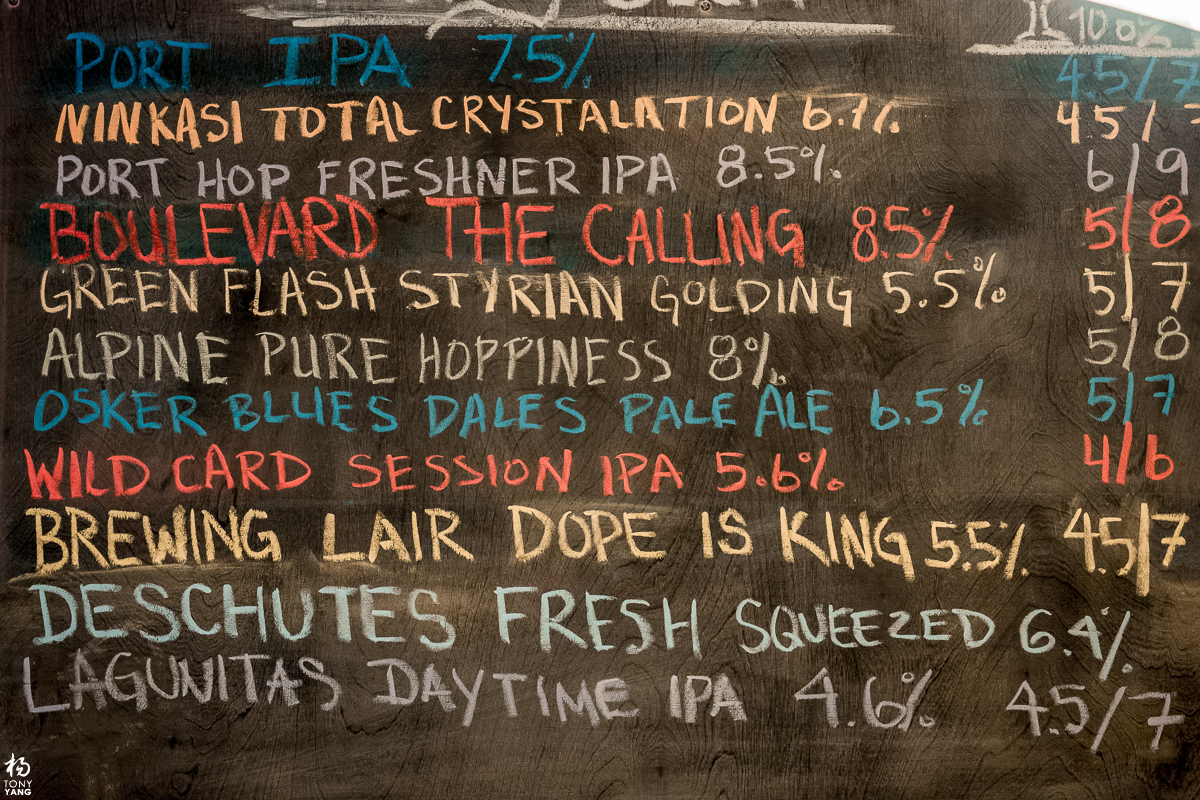 10.0%
PORT IPA 7.5% 4.5/7
NINKASI TOTAL CRYSTALATION 6.7% 4.5/
PORT HOP FRESHNER IPA 8.5% 6/9
BOULEVARD THE CALLING 8.5% 5/8
GREEN FLASH STYRIAN GOLDING 5.5% 5/7
ALPINE PURE HOPPINESS 8% 5/8
OSKER BLUES DALES PALE ALE 6.5% 5/7
WILD CARD SESSION IPA 5.6% 4/6
BREWING LAIR DOPE IS KING 5.5% 4.5/7
DESCHUTES FRESH SQUEEZED 6.4%
LAGUNITAS DAYTIME IPA 4.6% 4.5/7
杨
TONY
YANG